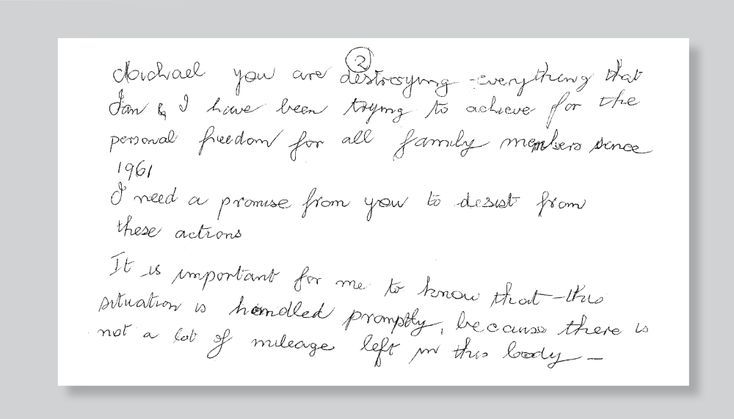 2
Michael you are destroying everything that
Jan & I have been trying to achieve for the
personal freedom for all family members since
1961
I need a promise from you to desist from
these actions
It is important for me to know that this
situation is handled promptly, because there is
not a lot of mileage left in this body —